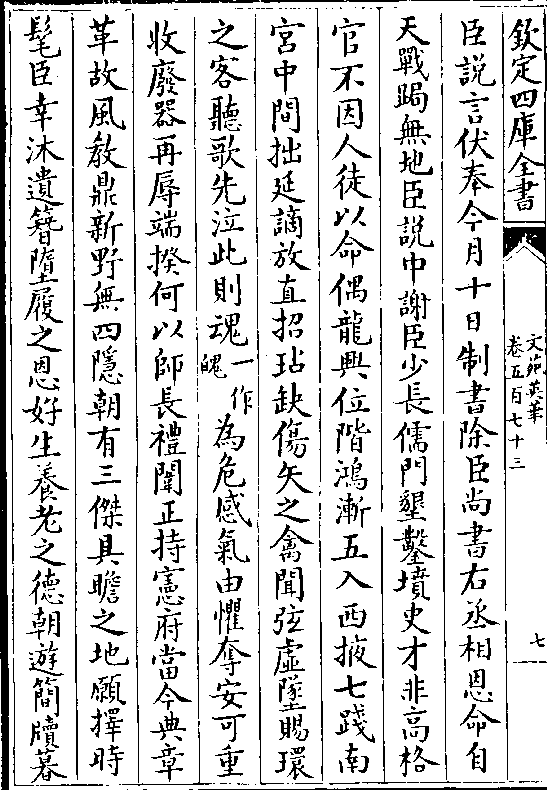 欽定四庫全書
文苑英華
卷五百七十三
七
臣說言伏奉今月十日制書除臣尚書右丞相恩命自
天戰跼無地臣說中謝臣少長儒門墾鑿墳史才非高格
官不因人徒以命偶龍興位階鴻漸五入西掖七踐南
宮中間拙延謫放直招玷缺傷矢之禽聞弦虛墜賜環
之客聽歌先泣此則魂一作魄為危感氣由懼奪安可重
收廢器再辱端揆何以師長禮闈正持憲府當今典章
革故風教鼎新野無四隱朝有三傑具瞻之地願擇時
髦臣幸沐遺簪墮履之恩好生養老之德朝遊簡牘暮